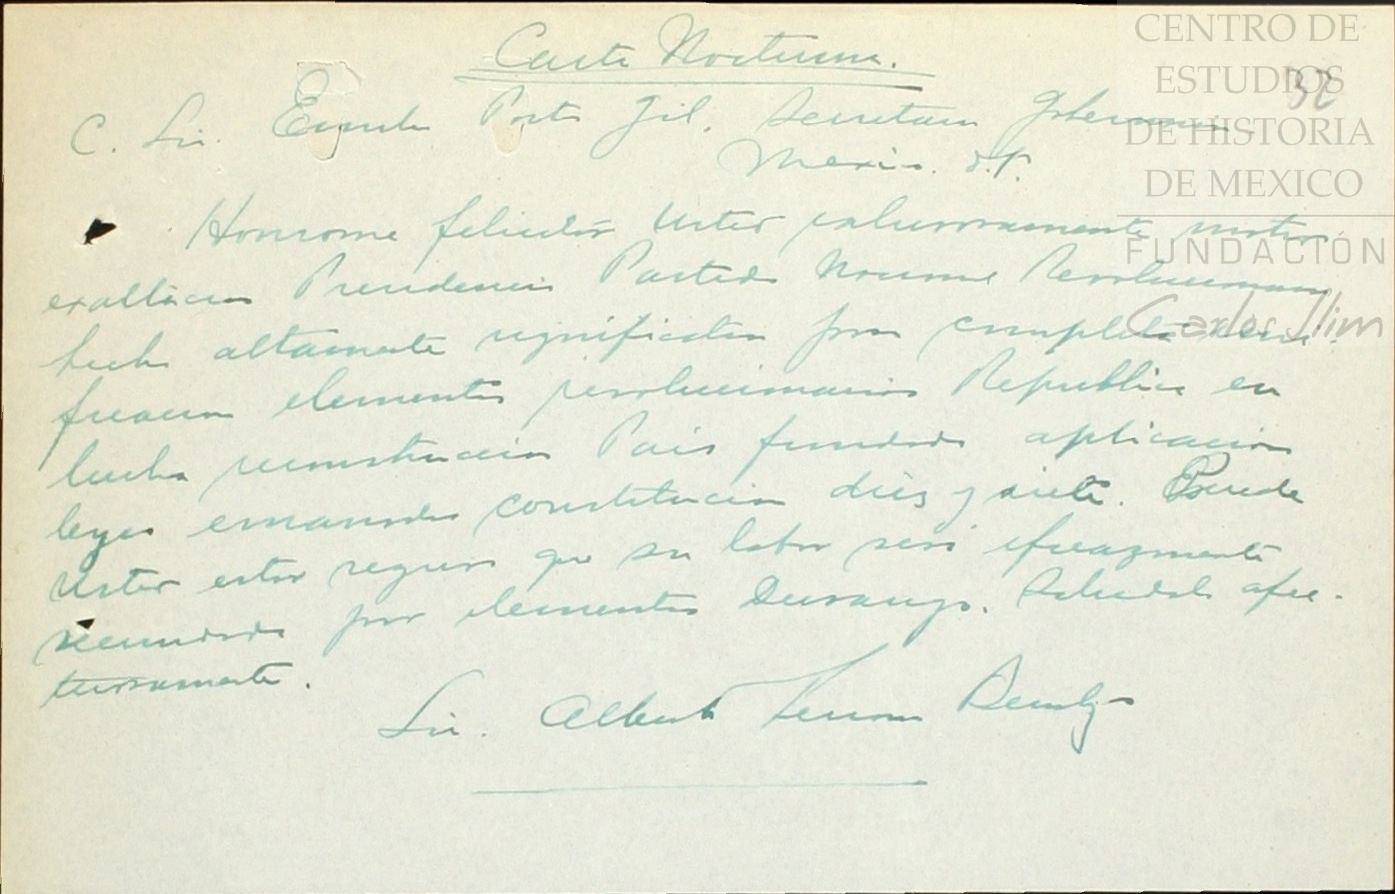 Carta Nocturna.
32
C. Lic. Emilio Portes Gil. Secretario Gobernación
Mexico. D.F.
Honrome felicitar Usted calurosamente motivo
exaltación Presidencia Partido Nacional Revolucionario
hecho altamente significativo para completa
ficación elementos revolucionarios Republica en
lucha reconstrucción Pais fundado aplicación
leyes emanadas constitución diez y siete. Puede
Usted estar seguro que su labor será eficazmente
secundada por elementos Durango. Saludolo afec-
tuosamente.
Lic. Alberto Terrones Benitez
CENTRO DE
ESTUDIOS
DE HISTORIA
DE MEXICO
FUNDACIÓN
Carlos Slim